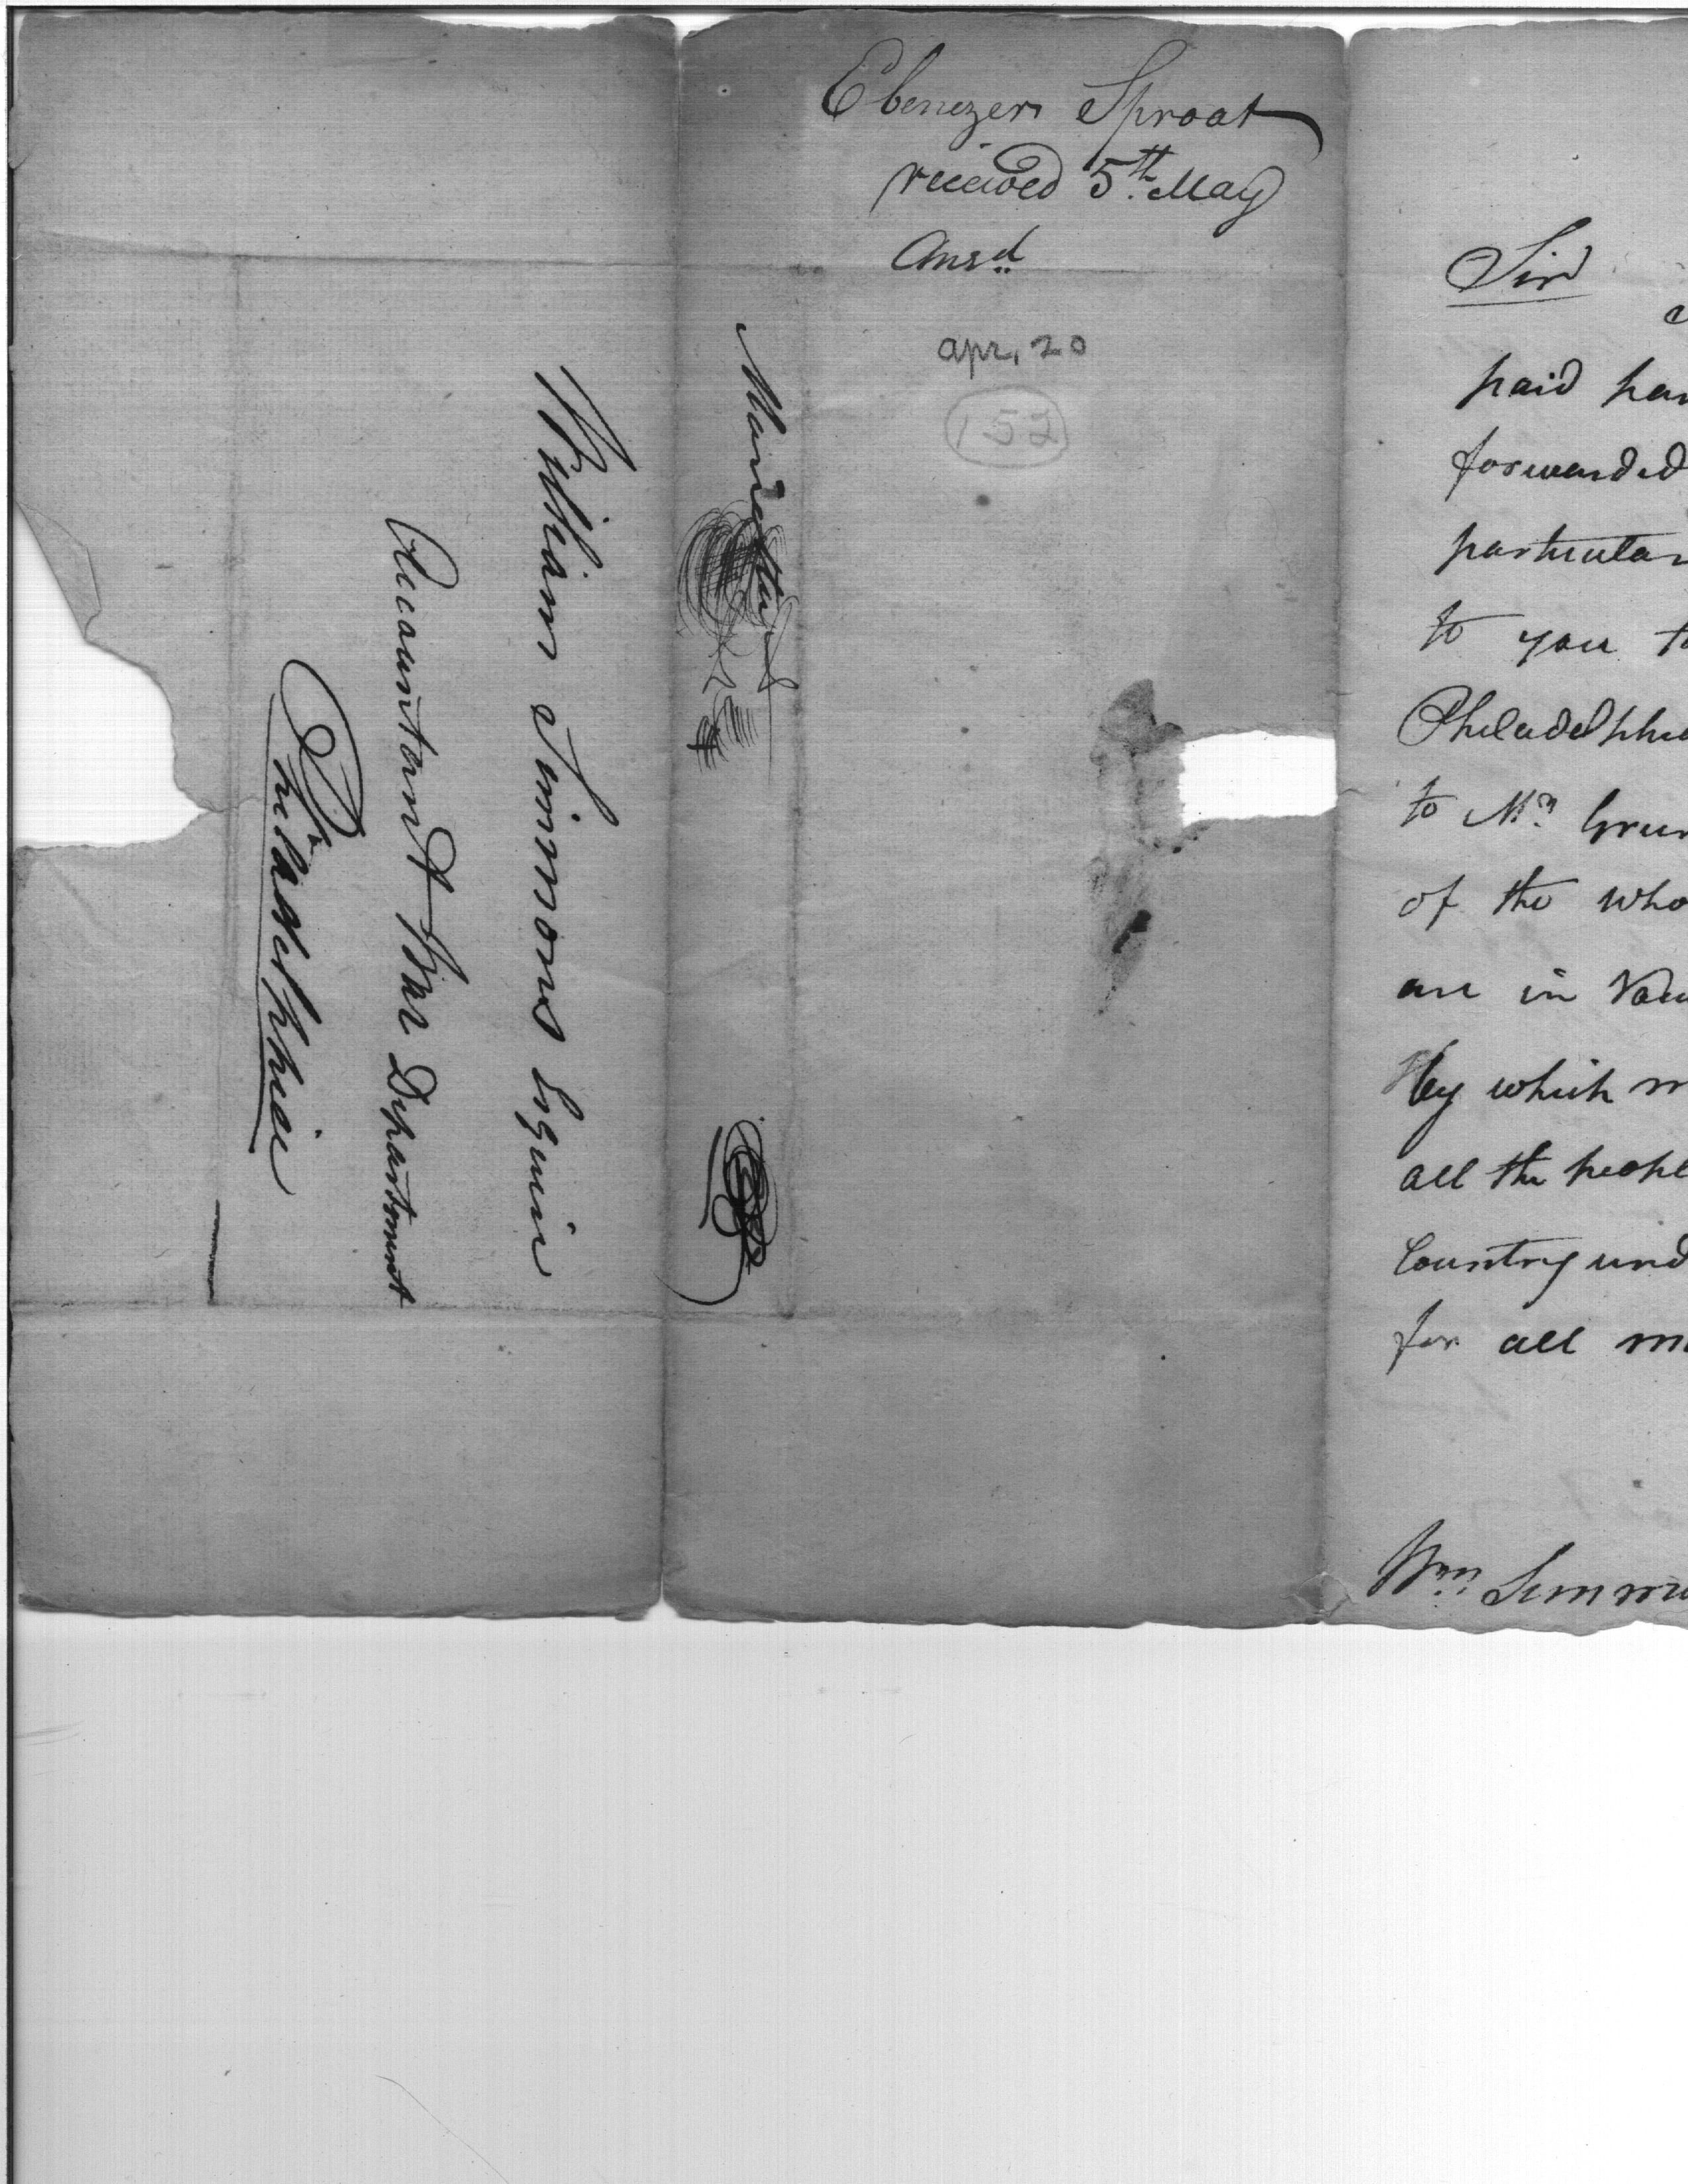 Ebenezer Sproat
received 5th May
Ansd
apr, 20
152
Marietta
William Simmons Esquire
Accountant War Department
Philadelphia
Sir
paid
forwarded
particular
to you
Philadelphia
to Mr.
of the
are in
by which
all the
Country
for all
Wm